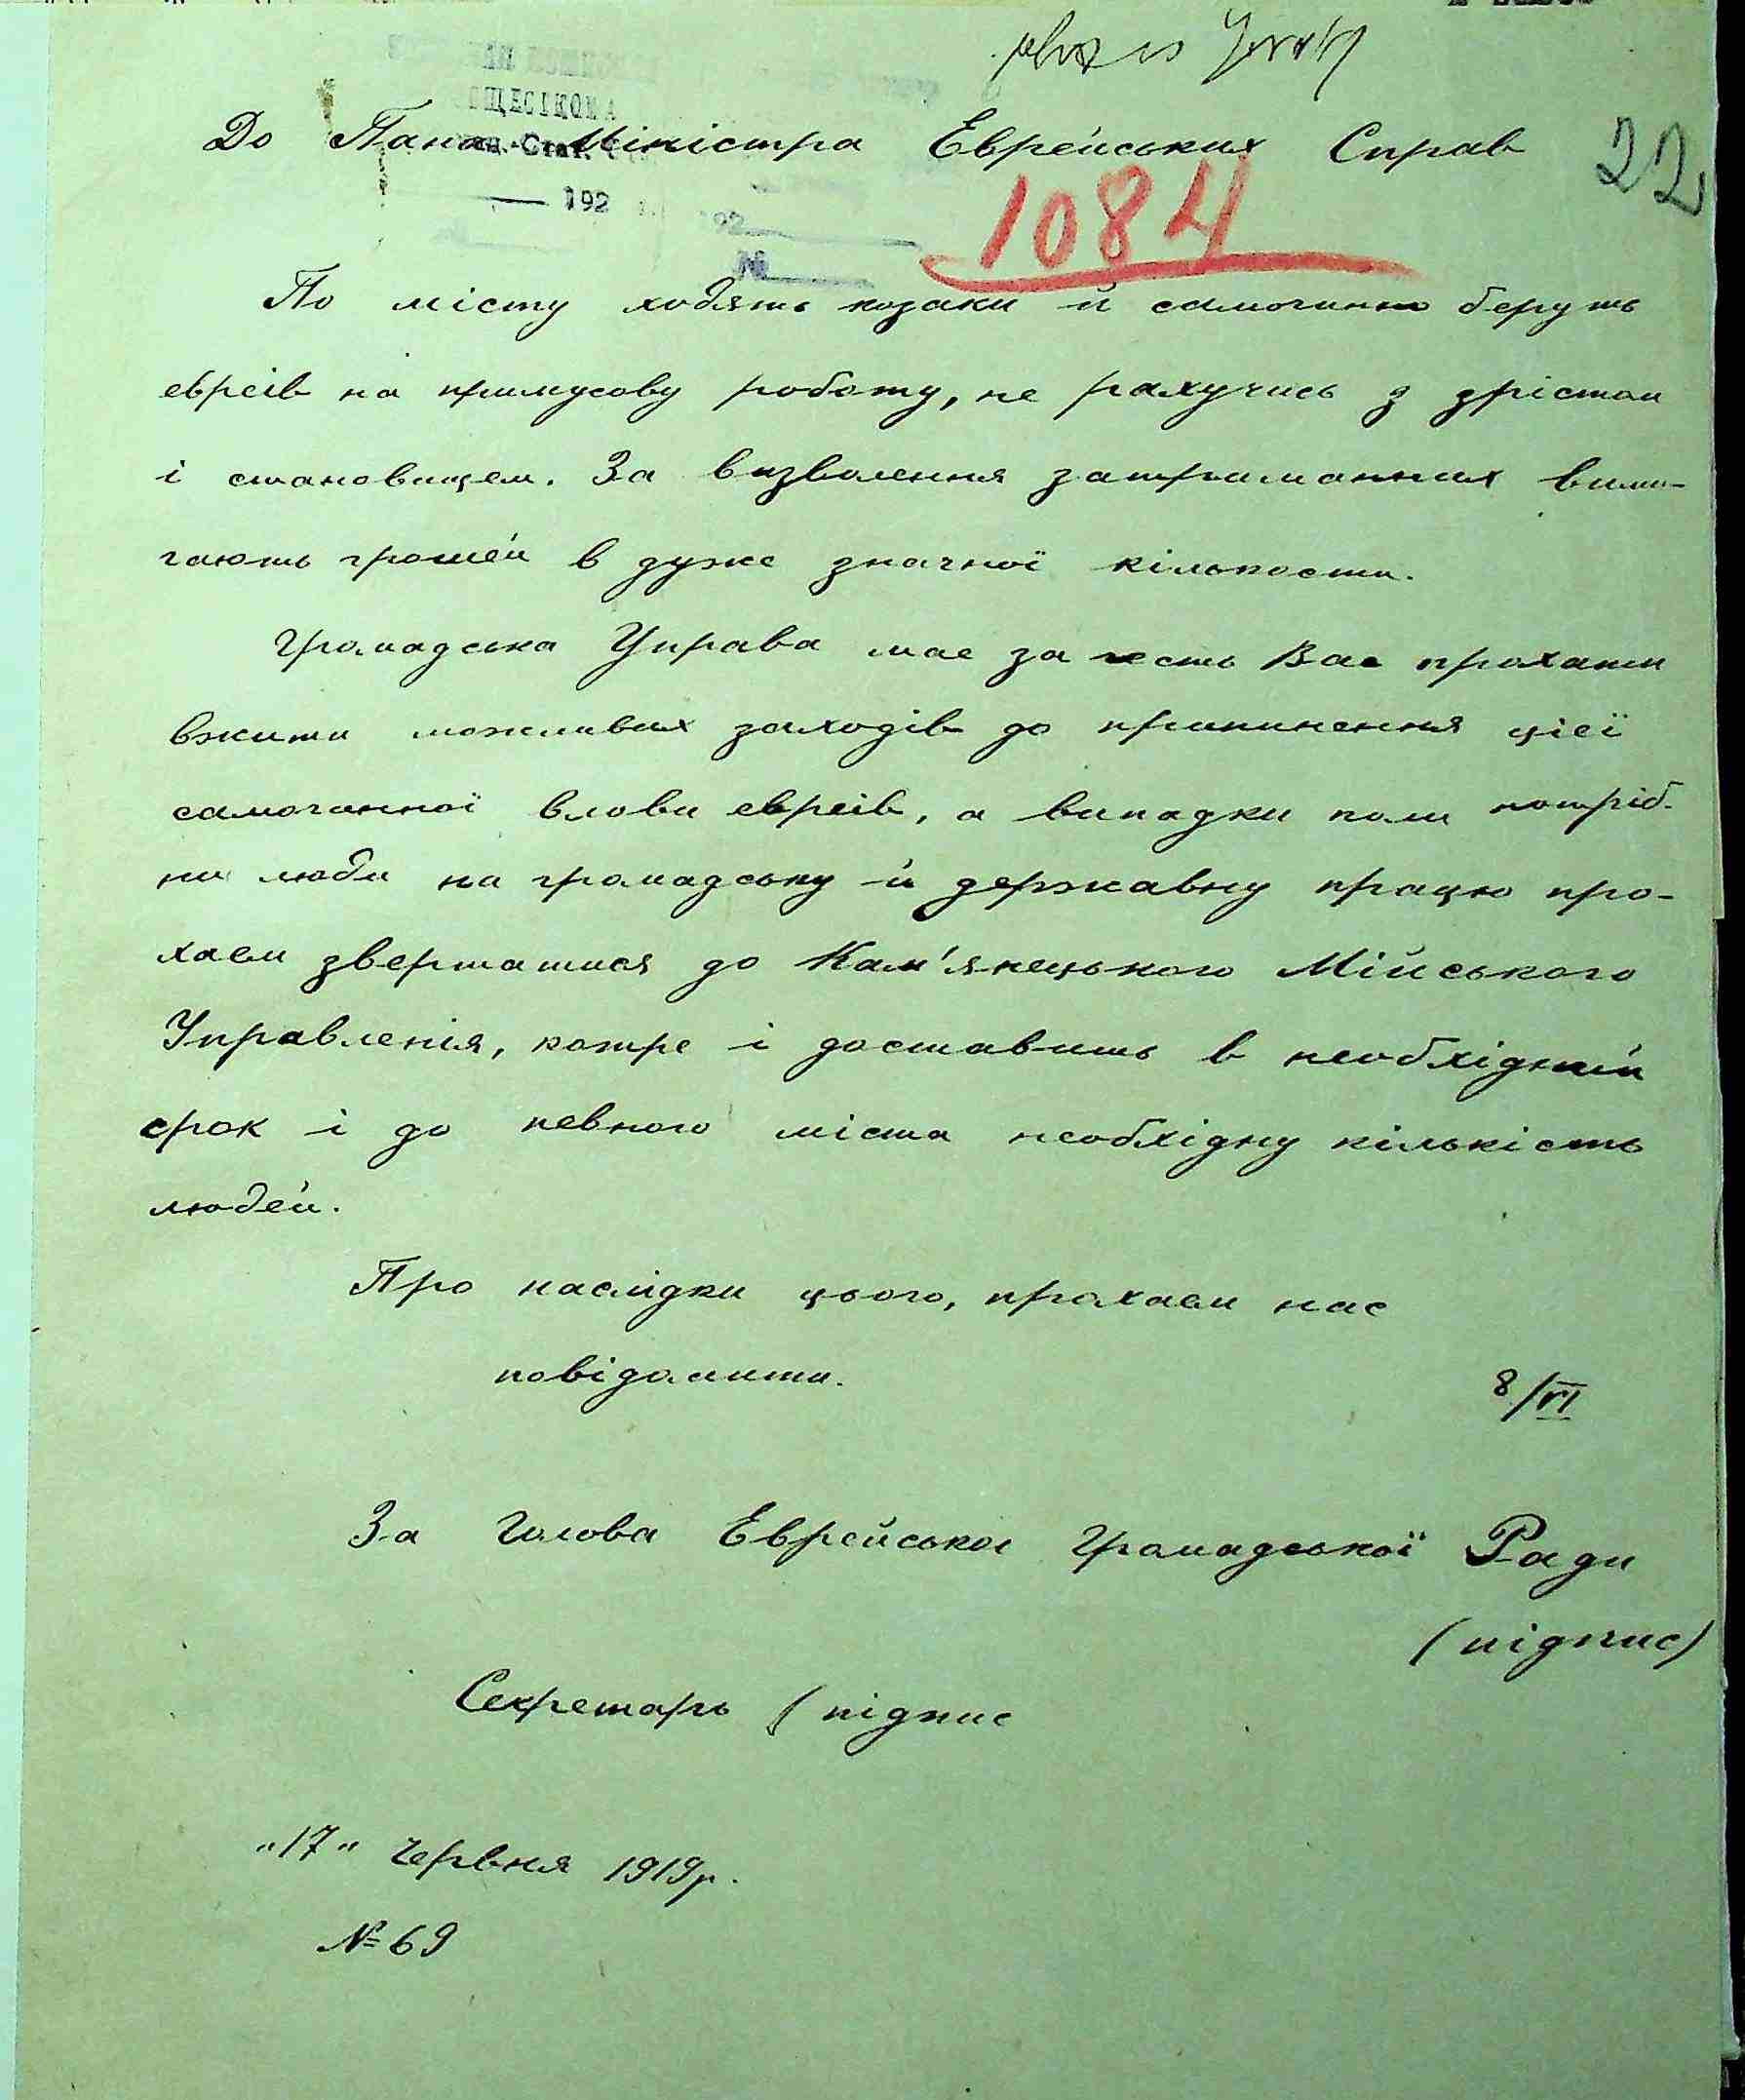 22
До Пана Міністра Еврейських Справ
192
192
№
1084
По місту ходять козаки й самочинно беруть
евреів на примусову роботу, не рахучись з зрістом
і становищем. За визволення затриманних вима-
гають грошей в дуже значної кількости.
Громадська Управа має за честь Вас прохати
вжити можливих заходів до припинення цієї
самочинної влови евреів, а випадки коли потріб-
ни люди на громадську й державну працю про-
хаем звертатися до Кам'янецького Мійського
Управления, котре і доставить в необхідний
срок і до певного міста необхідну кількість
людей.
Про наслідки цього, прохаем нас
повідомити.
8/VI
За Голова Еврейської Громадської Ради
(підпис)
Секретарь (підпис
„17" Червня 1919р.
№ 69